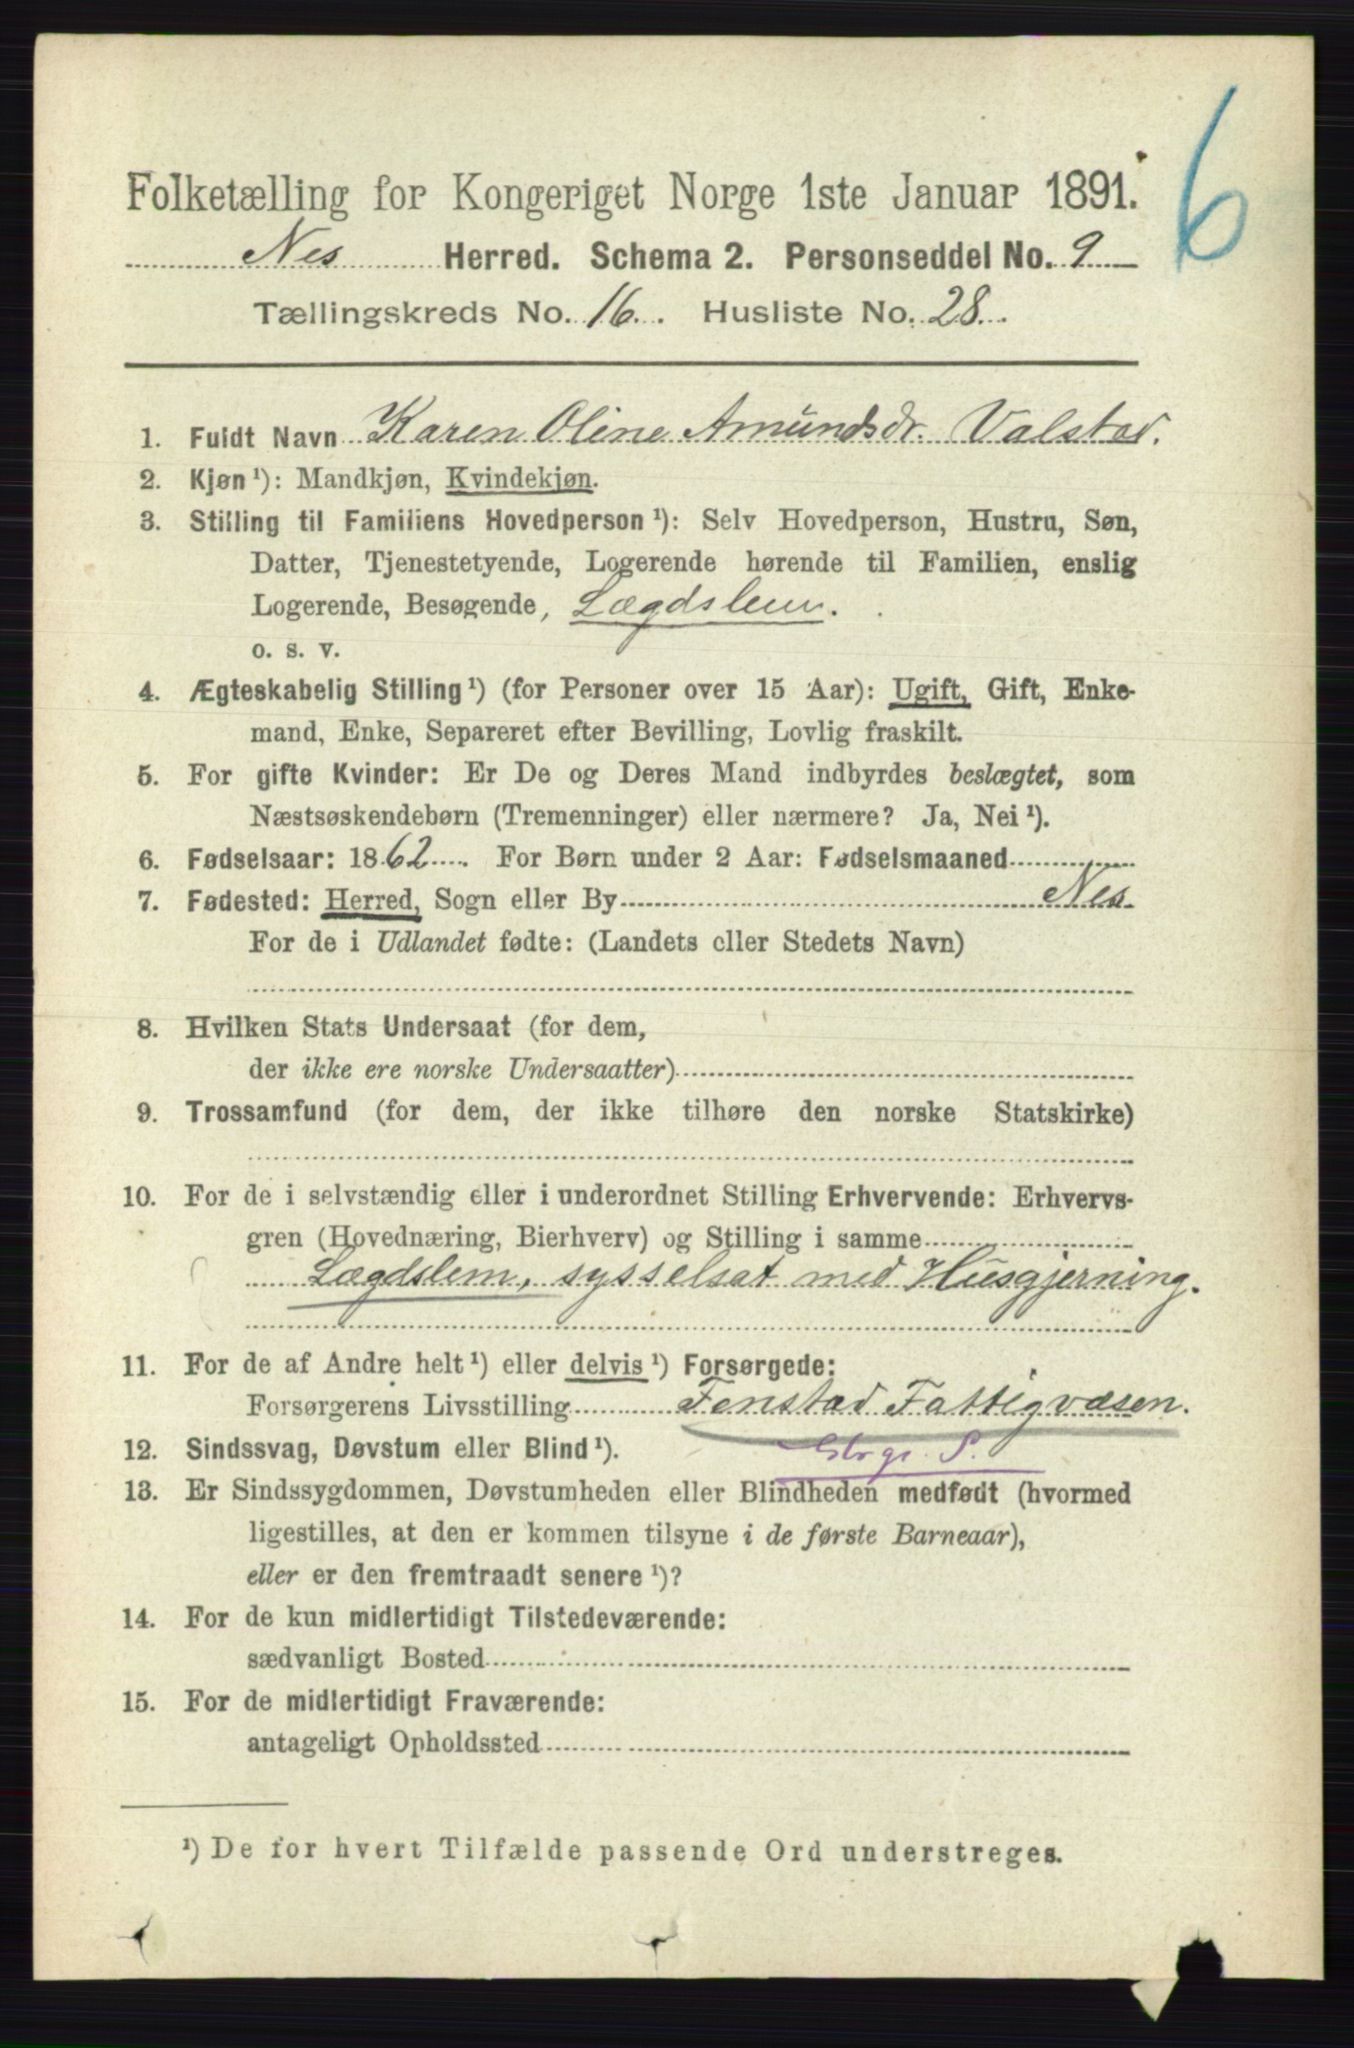 6
Folketælling for Kongeriget Norge 1ste Januar 1891.
Nes Herred. Schema 2. Personseddel No. 9
Tællingskreds No. 16. Husliste No. 28.
1. Fuldt Navn Karen Oline Amundsdr. Valstad.
2. Kjøn ¹): Mandkjøn, Kvindekjøn.
3. Stilling til Familiens Hovedperson ¹): Selv Hovedperson, Hustru, Søn,
Datter, Tjenestetyende, Logerende hørende til Familien, enslig
Logerende, Besøgende, Lægdslem.
o. s. v.
4. Ægteskabelig Stilling ¹) (for Personer over 15 Aar): Ugift, Gift, Enke-
mand, Enke, Separeret efter Bevilling, Lovlig fraskilt.
5. For gifte Kvinder: Er De og Deres Mand indbyrdes beslægtet, som
Næstsøskendebørn (Tremenninger) eller nærmere? Ja, Nei ¹).
6. Fødselsaar: 1862. For Børn under 2 Aar: Fødselsmaaned
7. Fødested: Herred, Sogn eller By Nes.
For de i Udlandet fødte: (Landets eller Stedets Navn)
8. Hvilken Stats Undersaat (for dem,
der ikke ere norske Undersaatter)
9. Trossamfund (for dem, der ikke tilhøre den norske Statskirke)
10. For de i selvstændig eller i underordnet Stilling Erhvervende: Erhvervs-
gren (Hovednæring, Bierhverv) og Stilling i samme
Lægdslem, sysselsat med Husgjerning.
11. For de af Andre helt ¹) eller delvis ¹) Forsørgede:
Forsørgerens Livsstilling Fenstad Fattigvæsen.
12. Sindssvag, Døvstum eller Blind ¹).
13. Er Sindssygdommen, Døvstumheden eller Blindheden medfødt (hvormed
ligestilles, at den er kommen tilsyne i de første Barneaar),
eller er den fremtraadt senere ¹)?
14. For de kun midlertidigt Tilstedeværende:
sædvanligt Bosted
15. For de midlertidigt Fraværende:
antageligt Opholdssted
¹) De for hvert Tilfælde passende Ord understreges.